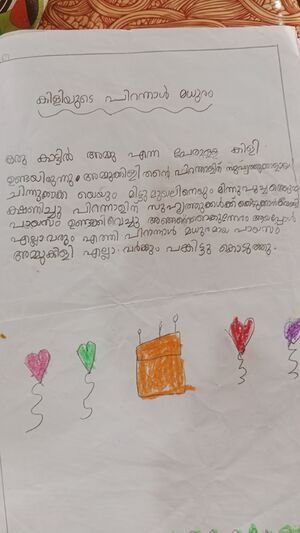 കിളിയുടെ പിറന്നാൾ മധുരം
ഒരു കാട്ടിൽ അമ്മു എന്ന പേരുള്ള കിളി
ഉണ്ടായിരുന്നു. അമ്മുക്കിളി തന്റെ പിറന്നാളിന് സുഹൃത്തുക്കളായ
ചിന്നുക്കാക്ക യെയും മിട്ടുമുയലിനെയും മിന്നുപൂച്ചയെയും
ക്ഷണിച്ചു പിറന്നാളിന് സുഹൃത്തുക്കൾക്ക്
പായസം ഉണ്ടക്കി വെച്ചു അങ്ങനെ ആയപ്പോൾ
എല്ലാവരും എത്തി പിറന്നാൾ മധുരമായ പായസം
അമ്മുക്കിളി എല്ലാ വർക്കും പങ്കിട്ടു കൊടുത്തു.